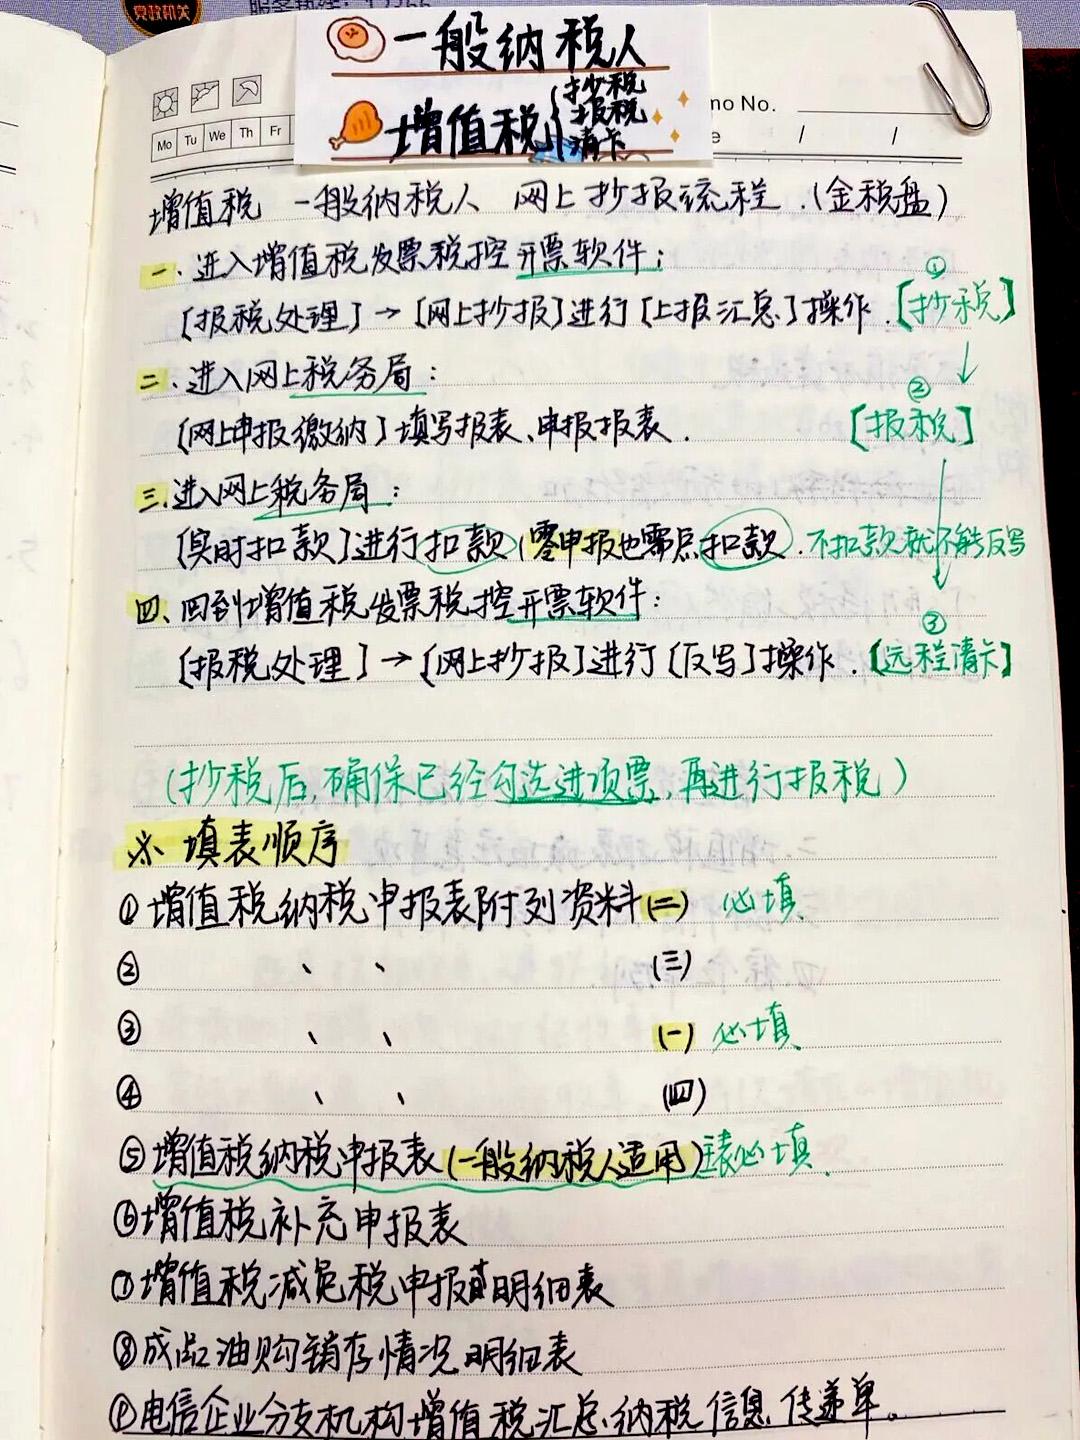 党政机关
一般纳税人
增值税{抄税
报税
清卡
mo No.
Mo Tu We Th Fr
e / /
增值税 一般纳税人 网上抄报流程.(金税盘)
一.进入增值税发票税控开票软件;
①
[报税处理]→[网上抄报]进行[上报汇总]操作.[抄税]
二.进入网上税务局:
②
[网上申报缴纳]填写报表、申报报表. [报税]
三.进入网上税务局:
[实时扣款]进行扣款(零申报也需点扣款.不扣款就不能反写
四、回到增值税发票税控开票软件:
③
[报税处理]→[网上抄报]进行[反写]操作.[远程清卡]
(抄税后,确保已经勾选进项票,再进行报税)
※ 填表顺序
①增值税纳税申报表附列资料(二) 必填
② 、 、 (三)
③ 、 、 (一) 必填
④ 、 、 (四)
⑤增值税纳税申报表(一般纳税人适用)主表必填
⑥增值税补充申报表
⑦增值税减免税申报明细表
⑧成品油购销存情况明细表
⑨电信企业分支机构增值税汇总纳税信息传递单。